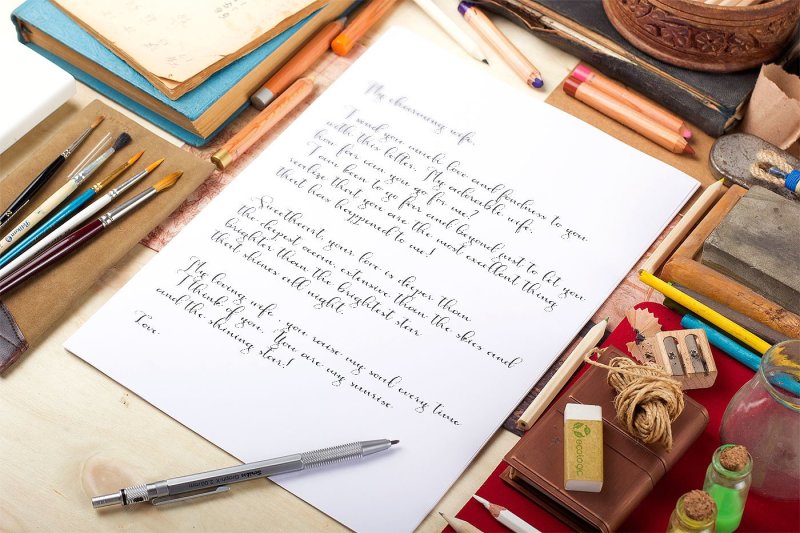 My charming wife.
I send you much love and fondness to you
with this letter. My adorable wife.
how far can you go for me?
I can been to go far and beyond just to let you
realize that you are the most excellent thing
that has happened to me!
Sweetheart, your love is deeper than
the deepest ocean, extensive than the skies and
brighter than the brightest star
that shines all night.
My loving wife, you raise my soul every time
I think of you. You are my sunrise
and the shining star!
Tom
ecologic